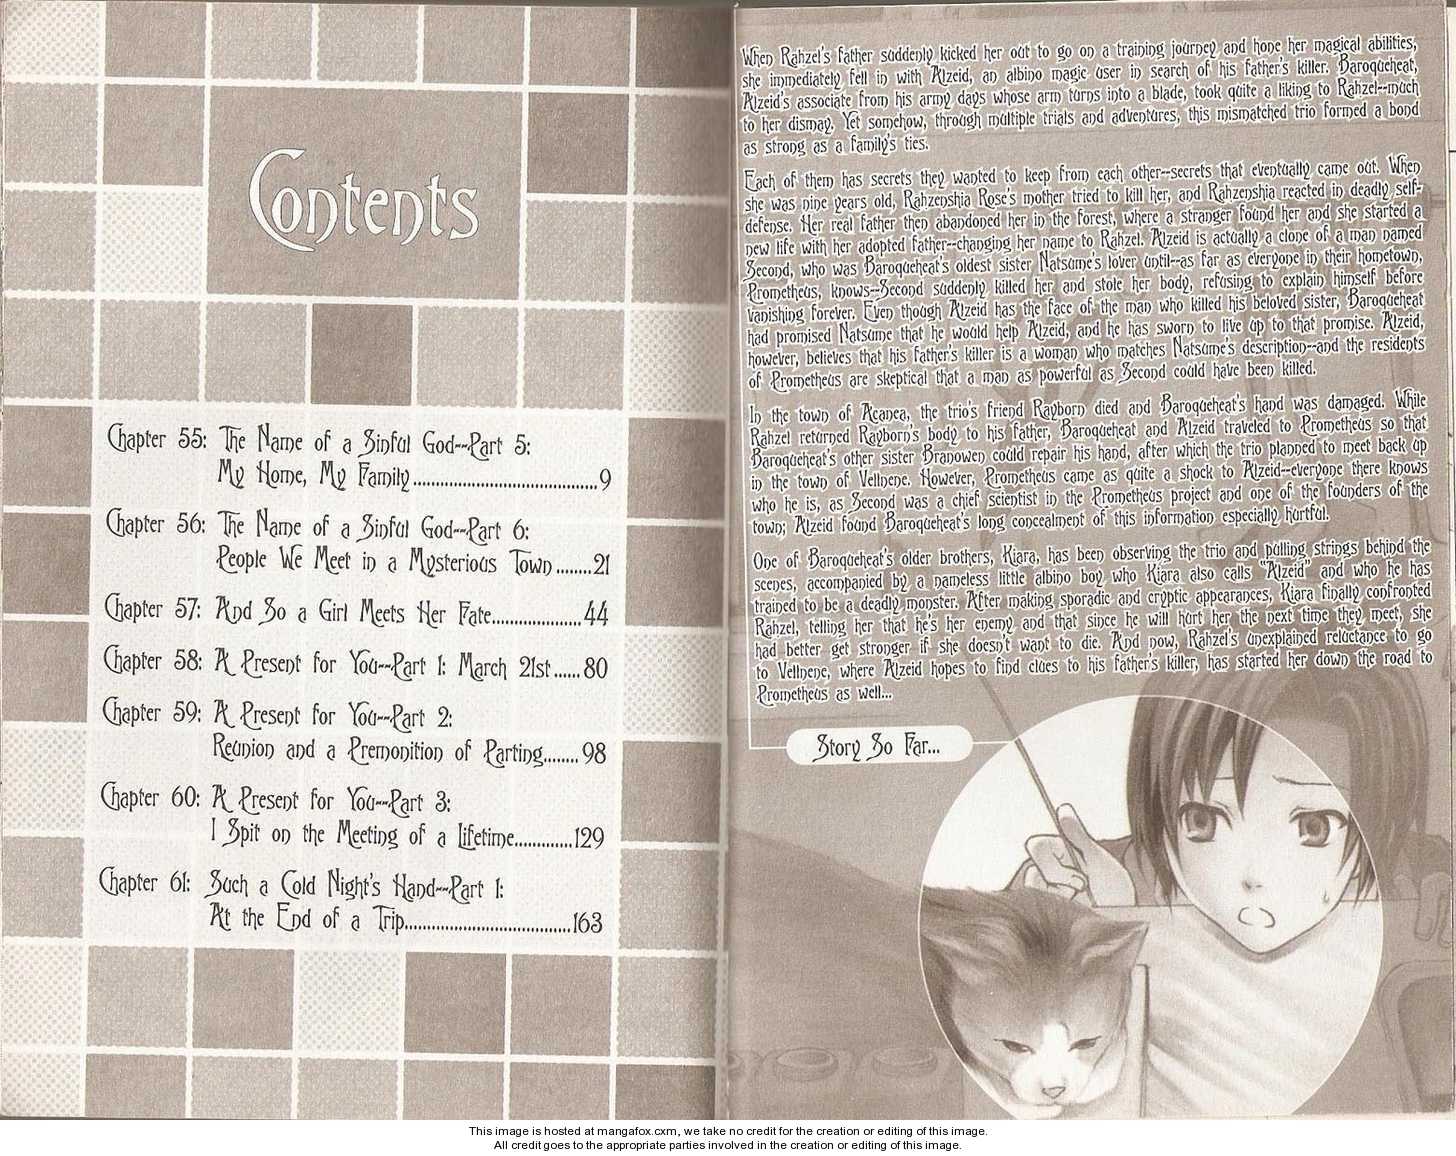 Contents
Chapter 55: The Name of a Sinful God--Part 5:
My Home, My Family........................................9
Chapter 56: The Name of a Sinful God--Part 6:
People We Meet in a Mysterious Town........21
Chapter 57: And So a Girl Meets Her Fate....................44
Chapter 58: A Present for You--Part 1: March 21st......80
Chapter 59: A Present for You--Part 2:
Reunion and a Premonition of Parting........98
Chapter 60: A Present for You--Part 3:
I Spit on the Meeting of a Lifetime.............129
Chapter 61: Such a Cold Night's Hand--Part 1:
At the End of a Trip.....................................163
When Rahzel's father suddenly kicked her out to go on a training journey and hone her magical abilities,
she immediately fell in with Alzeid, an albino magic user in search of his father's killer. Baroqueheat,
Alzeid's associate from his army days whose arm turns into a blade, took quite a liking to Rahzel--much
to her dismay. Yet somehow, through multiple trials and adventures, this mismatched trio formed a bond
as strong as a family's ties.
Each of them has secrets they wanted to keep from each other--secrets that eventually came out. When
she was nine years old, Rahzenshia Rose's mother tried to kill her, and Rahzenshia reacted in deadly self-
defense. Her real father then abandoned her in the forest, where a stranger found her and she started a
new life with her adopted father--changing her name to Rahzel. Alzeid is actually a clone of a man named
Second, who was Baroqueheat's oldest sister Natsume's lover until--as far as everyone in their hometown,
Prometheus, knows--Second suddenly killed her and stole her body, refusing to explain himself before
vanishing forever. Even though Alzeid has the face of the man who killed his beloved sister, Baroqueheat
had promised Natsume that he would help Alzeid, and he has sworn to live up to that promise. Alzeid,
however, believes that his father's killer is a woman who matches Natsume's description--and the residents
of Prometheus are skeptical that a man as powerful as Second could have been killed.
In the town of Acanea, the trio's friend Rayborn died and Baroqueheat's hand was damaged. While
Rahzel returned Rayborn's body to his father, Baroqueheat and Alzeid traveled to Prometheus so that
Baroqueheat's other sister Branowen could repair his hand, after which the trio planned to meet back up
in the town of Vellnene. However, Prometheus came as quite a shock to Alzeid--everyone there knows
who he is, as Second was a chief scientist in the Prometheus project and one of the founders of the
town; Alzeid found Baroqueheat's long concealment of this information especially hurtful.
One of Baroqueheat's older brothers, Kiara, has been observing the trio and pulling strings behind the
scenes, accompanied by a nameless little albino boy who Kiara also calls "Alzeid" and who he has
trained to be a deadly monster. After making sporadic and cryptic appearances, Kiara finally confronted
Rahzel, telling her that he's her enemy and that since he will hurt her the next time they meet, she
had better get stronger if she doesn't want to die. And now, Rahzel's unexplained reluctance to go
to Vellnene, where Alzeid hopes to find clues to his father's killer, has started her down the road to
Prometheus as well...
Story So Far...
This image is hosted at mangafox.cxm, we take no credit for the creation or editing of this image.
All credit goes to the appropriate parties involved in the creation or editing of this image.